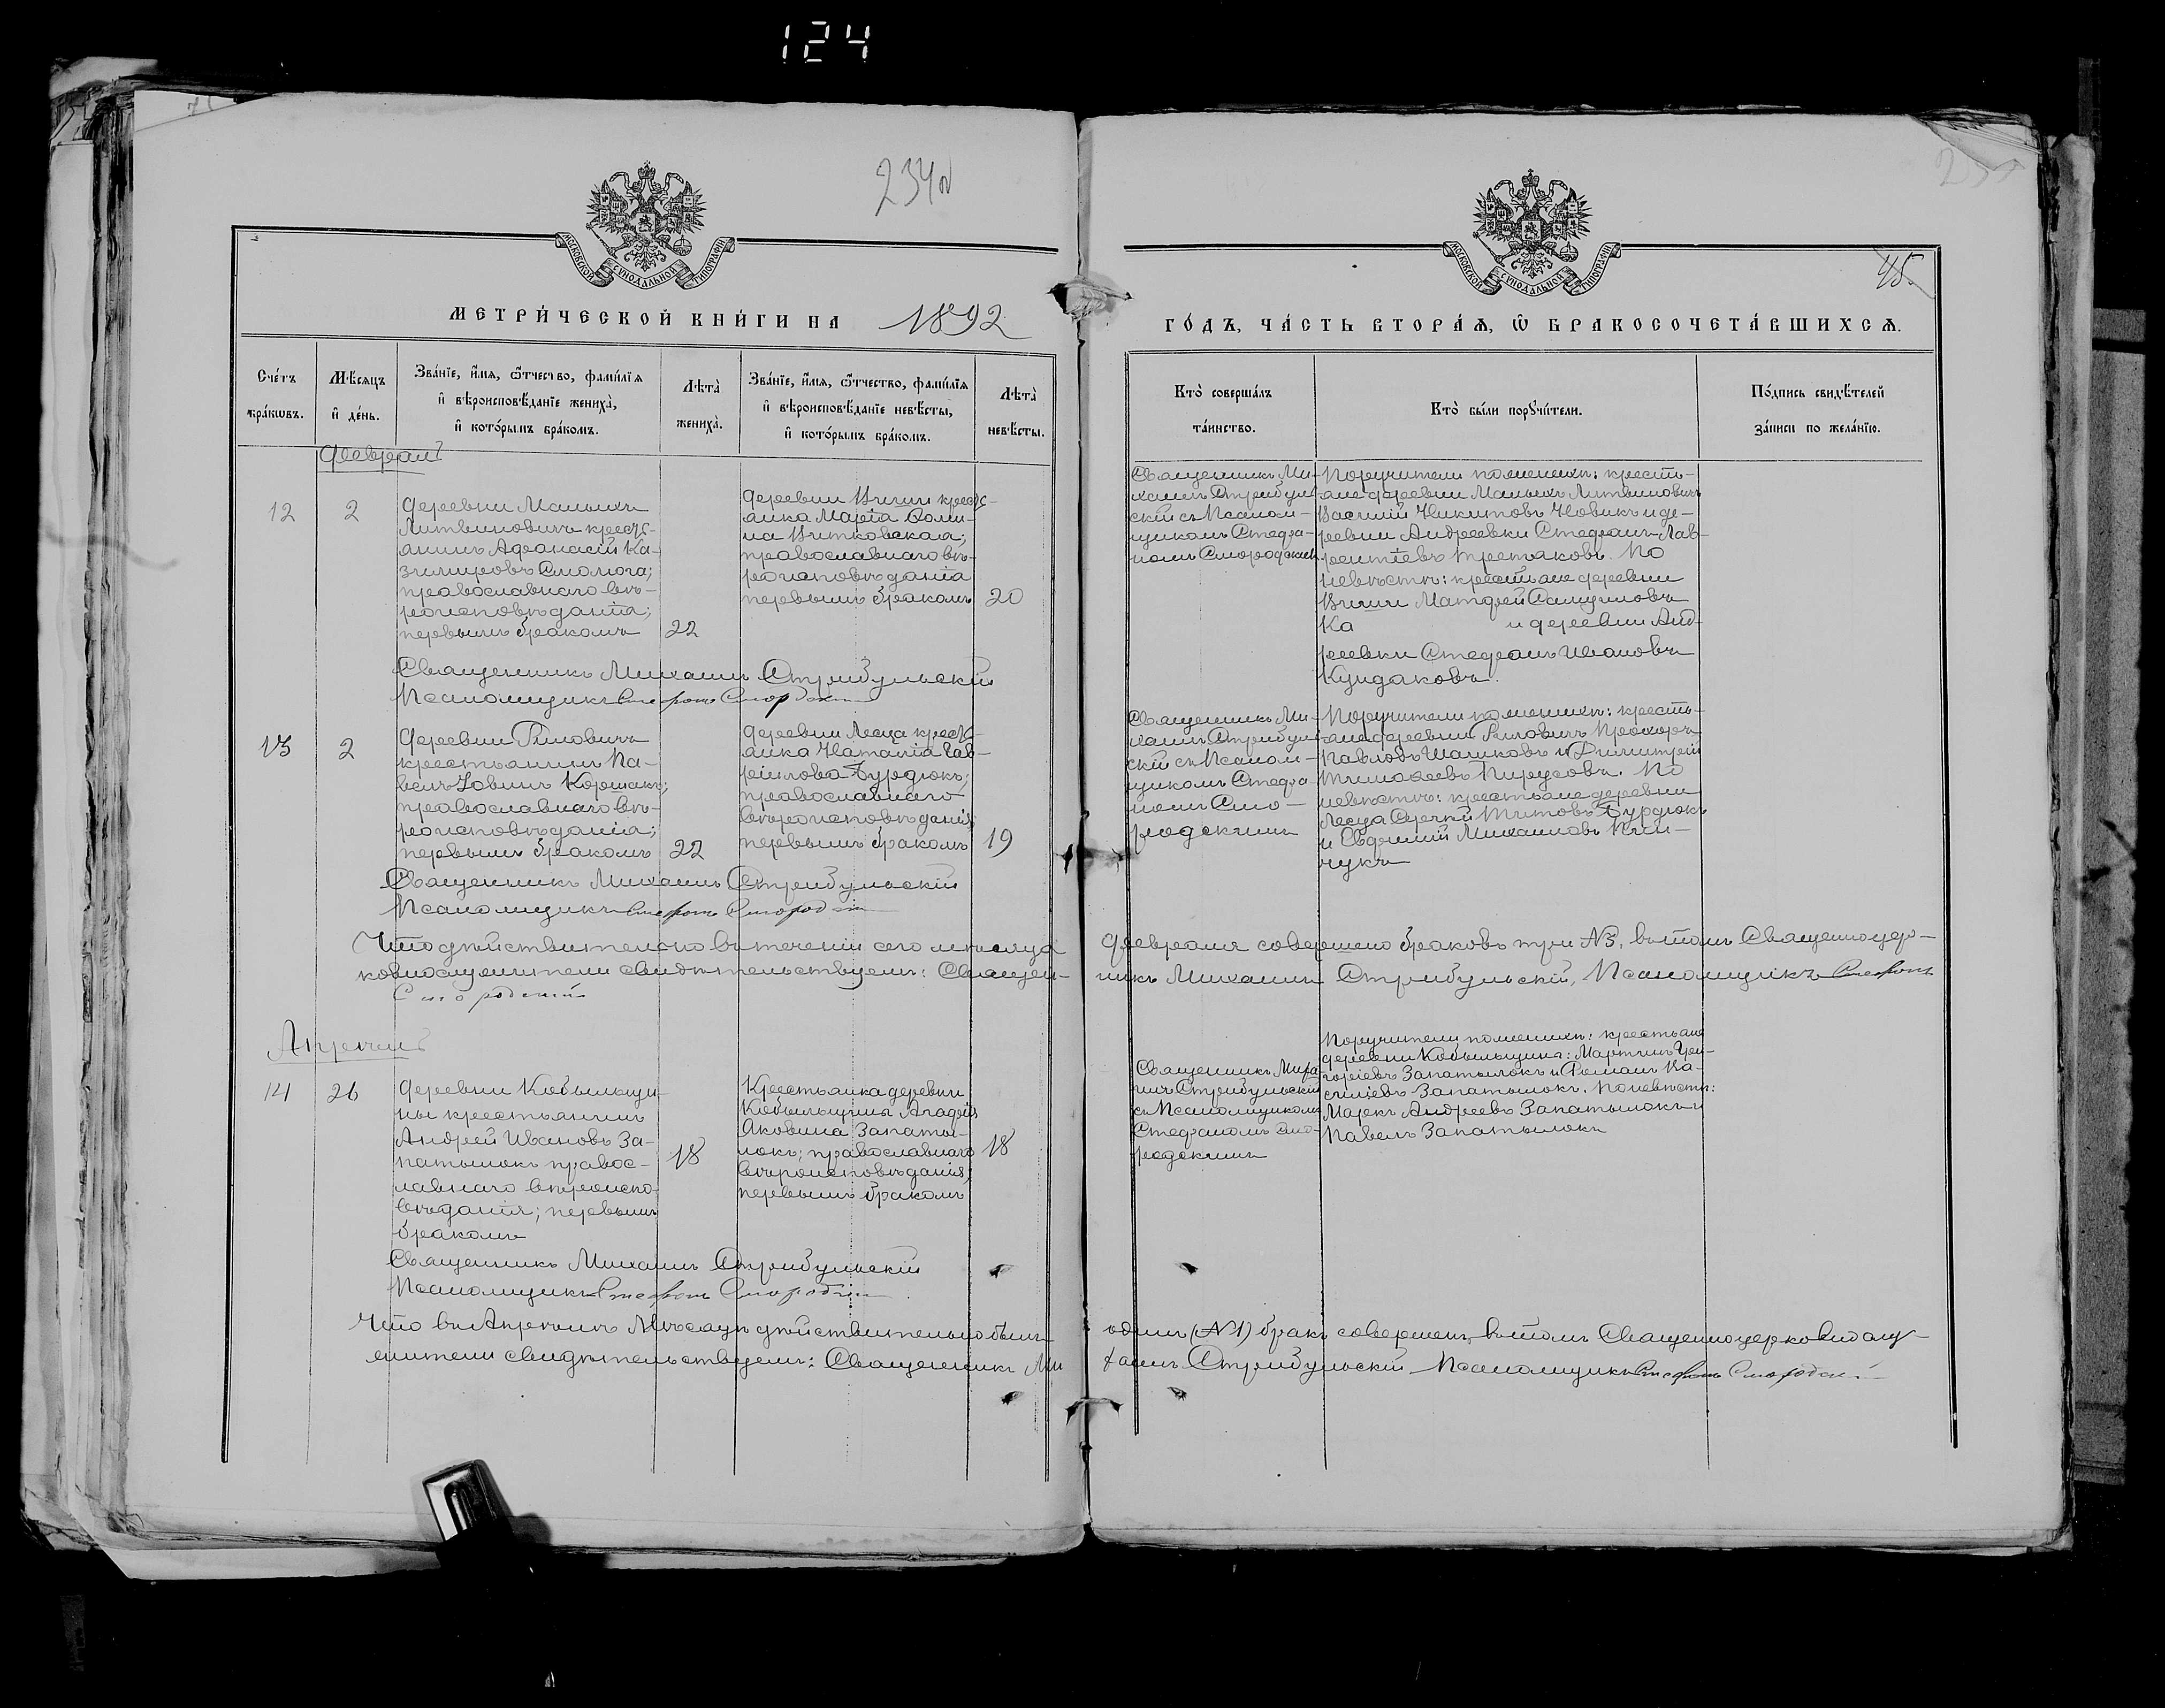 124
234 об
45.
МОСКОВСКОЙ СѴНОДАЛЬНОЙ ТИПОГРАФІИ
МОСКОВСКОЙ СѴНОДАЛЬНОЙ ТИПОГРАФІИ
МЕТРИ́ЧЕСКОЙ КНИ́ГИ НА 1892
ГО́ДЪ, ЧА́СТЬ ВТОРА́Ѧ, Ѡ БРАКОСОЧЕТА́ВШИХСѦ.
Сче́тъ
бра́кѡвъ.
Мѣ́сѧцъ
и҆ де́нь.
Зва́нїе, и҆́мѧ, ѻ҆́тчество, фами́лїѧ
и҆ вѣроисповѣ́данїе жениха̀,
и҆ кото́рымъ бра́комъ.
Лѣта̀
жениха̀.
Зва́нїе, и҆́мѧ, ѻ҆́тчество, фами́лїѧ
и҆ вѣроисповѣ́данїе невѣ́сты,
и҆ кото́рымъ бра́комъ.
Лѣта̀
невѣ́сты.
Кто̀ соверша́лъ
та́инство.
Кто̀ бы́ли порꙋчи́тели.
По́дпись свидѣ́телей
за́писи по жела́нїю.
Февраль
12
2
Деревни Малыхъ
Литвиновичъ кресть-
янинъ Афанасій Ка-
зимировъ Смолюга;
православнаго вѣ-
роисповѣданія;
первымъ бракомъ
22
Деревни Вичин кресть-
янка Марія Соми-
на Витковская;
православнаго вѣ-
роисповѣданія
первымъ бракомъ
20
Священникъ Ми-
хаилъ Стрибуль-
скій съ Псалом-
щикомъ Стефа-
номъ Смородскимъ
Поручители по женихѣ: кресть-
яне деревни Малыхъ Литвиновичъ
Василій Никитовъ Новикъ и де-
ревни Андреевки Стефанъ Лав-
рентіевъ Третьяковъ. По
невѣстѣ: крестьяне деревни
Вичин Матфей Самуиловъ
Ка и деревни Анд-
реевки Стефанъ Ивановъ
Кундаковъ.
Священникъ Михаилъ Стрибульскій
Псаломщикъ Стефанъ Смородскій
13
2
Деревни Римовичъ
крестьянинъ Па-
велъ Іовинъ Коршакъ;
православнаго вѣ-
роисповѣданія;
первымъ бракомъ
22
Деревни Леща кресть-
янка Наталія Гав-
рилова Бурдюкъ;
православнаго
вѣроисповѣданія,
первымъ бракомъ
19
Священникъ Ми-
хаилъ Стрибуль-
скій съ Псалом-
щикомъ Стефа-
номъ Смо-
родскимъ
Поручители по женихѣ: кресть-
яне деревни Римовичъ Прохоръ
Павловъ Шашковъ и Димитрій
Тимофеевъ Пирусовъ. По
невѣстѣ: крестьяне деревни
Леща Сергій Титовъ Бурдюкъ
и Евфимій Михаиловъ Клим-
чукъ
Священникъ Михаилъ Стрибульскій
Псаломщикъ Стефанъ Смородскій
Что дѣйствительно въ теченіи сего мѣсяца Февраля совершено браковъ три №3, въ томъ Священноцер-
ковнослужители свидѣтельствуемъ: Священ-никъ Михаилъ Стрибульскій, Псаломщикъ Стефанъ
Смородскій
Апрѣль
14
26
Деревни Кобыльщи-
ны крестьянинъ
Андрей Ивановъ За-
патылокъ правос-
лавнаго вѣроиспо-
вѣданія; первымъ
бракомъ
18
Крестьянка деревни
Кобыльщина Агафія
Яковина Запаты-
локъ; православнаго
вѣроисповѣданія;
первымъ бракомъ
18
Священникъ Миха-
илъ Стрибульскій
съ Псаломщикомъ
Стефаномъ Смо-
родскимъ
Поручители по женихѣ: крестьяне
деревни Кобыльщина: Мартинъ Гри-
горіевъ Запатылокъ и Романъ Ва-
силіевъ Запатылокъ. По невѣстѣ:
Маркъ Андреевъ Запатылокъ и
Павелъ Запатылокъ
Священникъ Михаилъ Стрибульскій
Псаломщикъ Стефанъ Смородскій
Что въ Апрѣлѣ Мѣсяцѣ дѣйствительно былъ одинъ (№1) бракъ совершенъ, въ томъ Священноцерковнослу-
жители свидѣтельствуемъ: Священникъ Ми-хаилъ Стрибульскій Псаломщикъ Стефанъ Смородскій